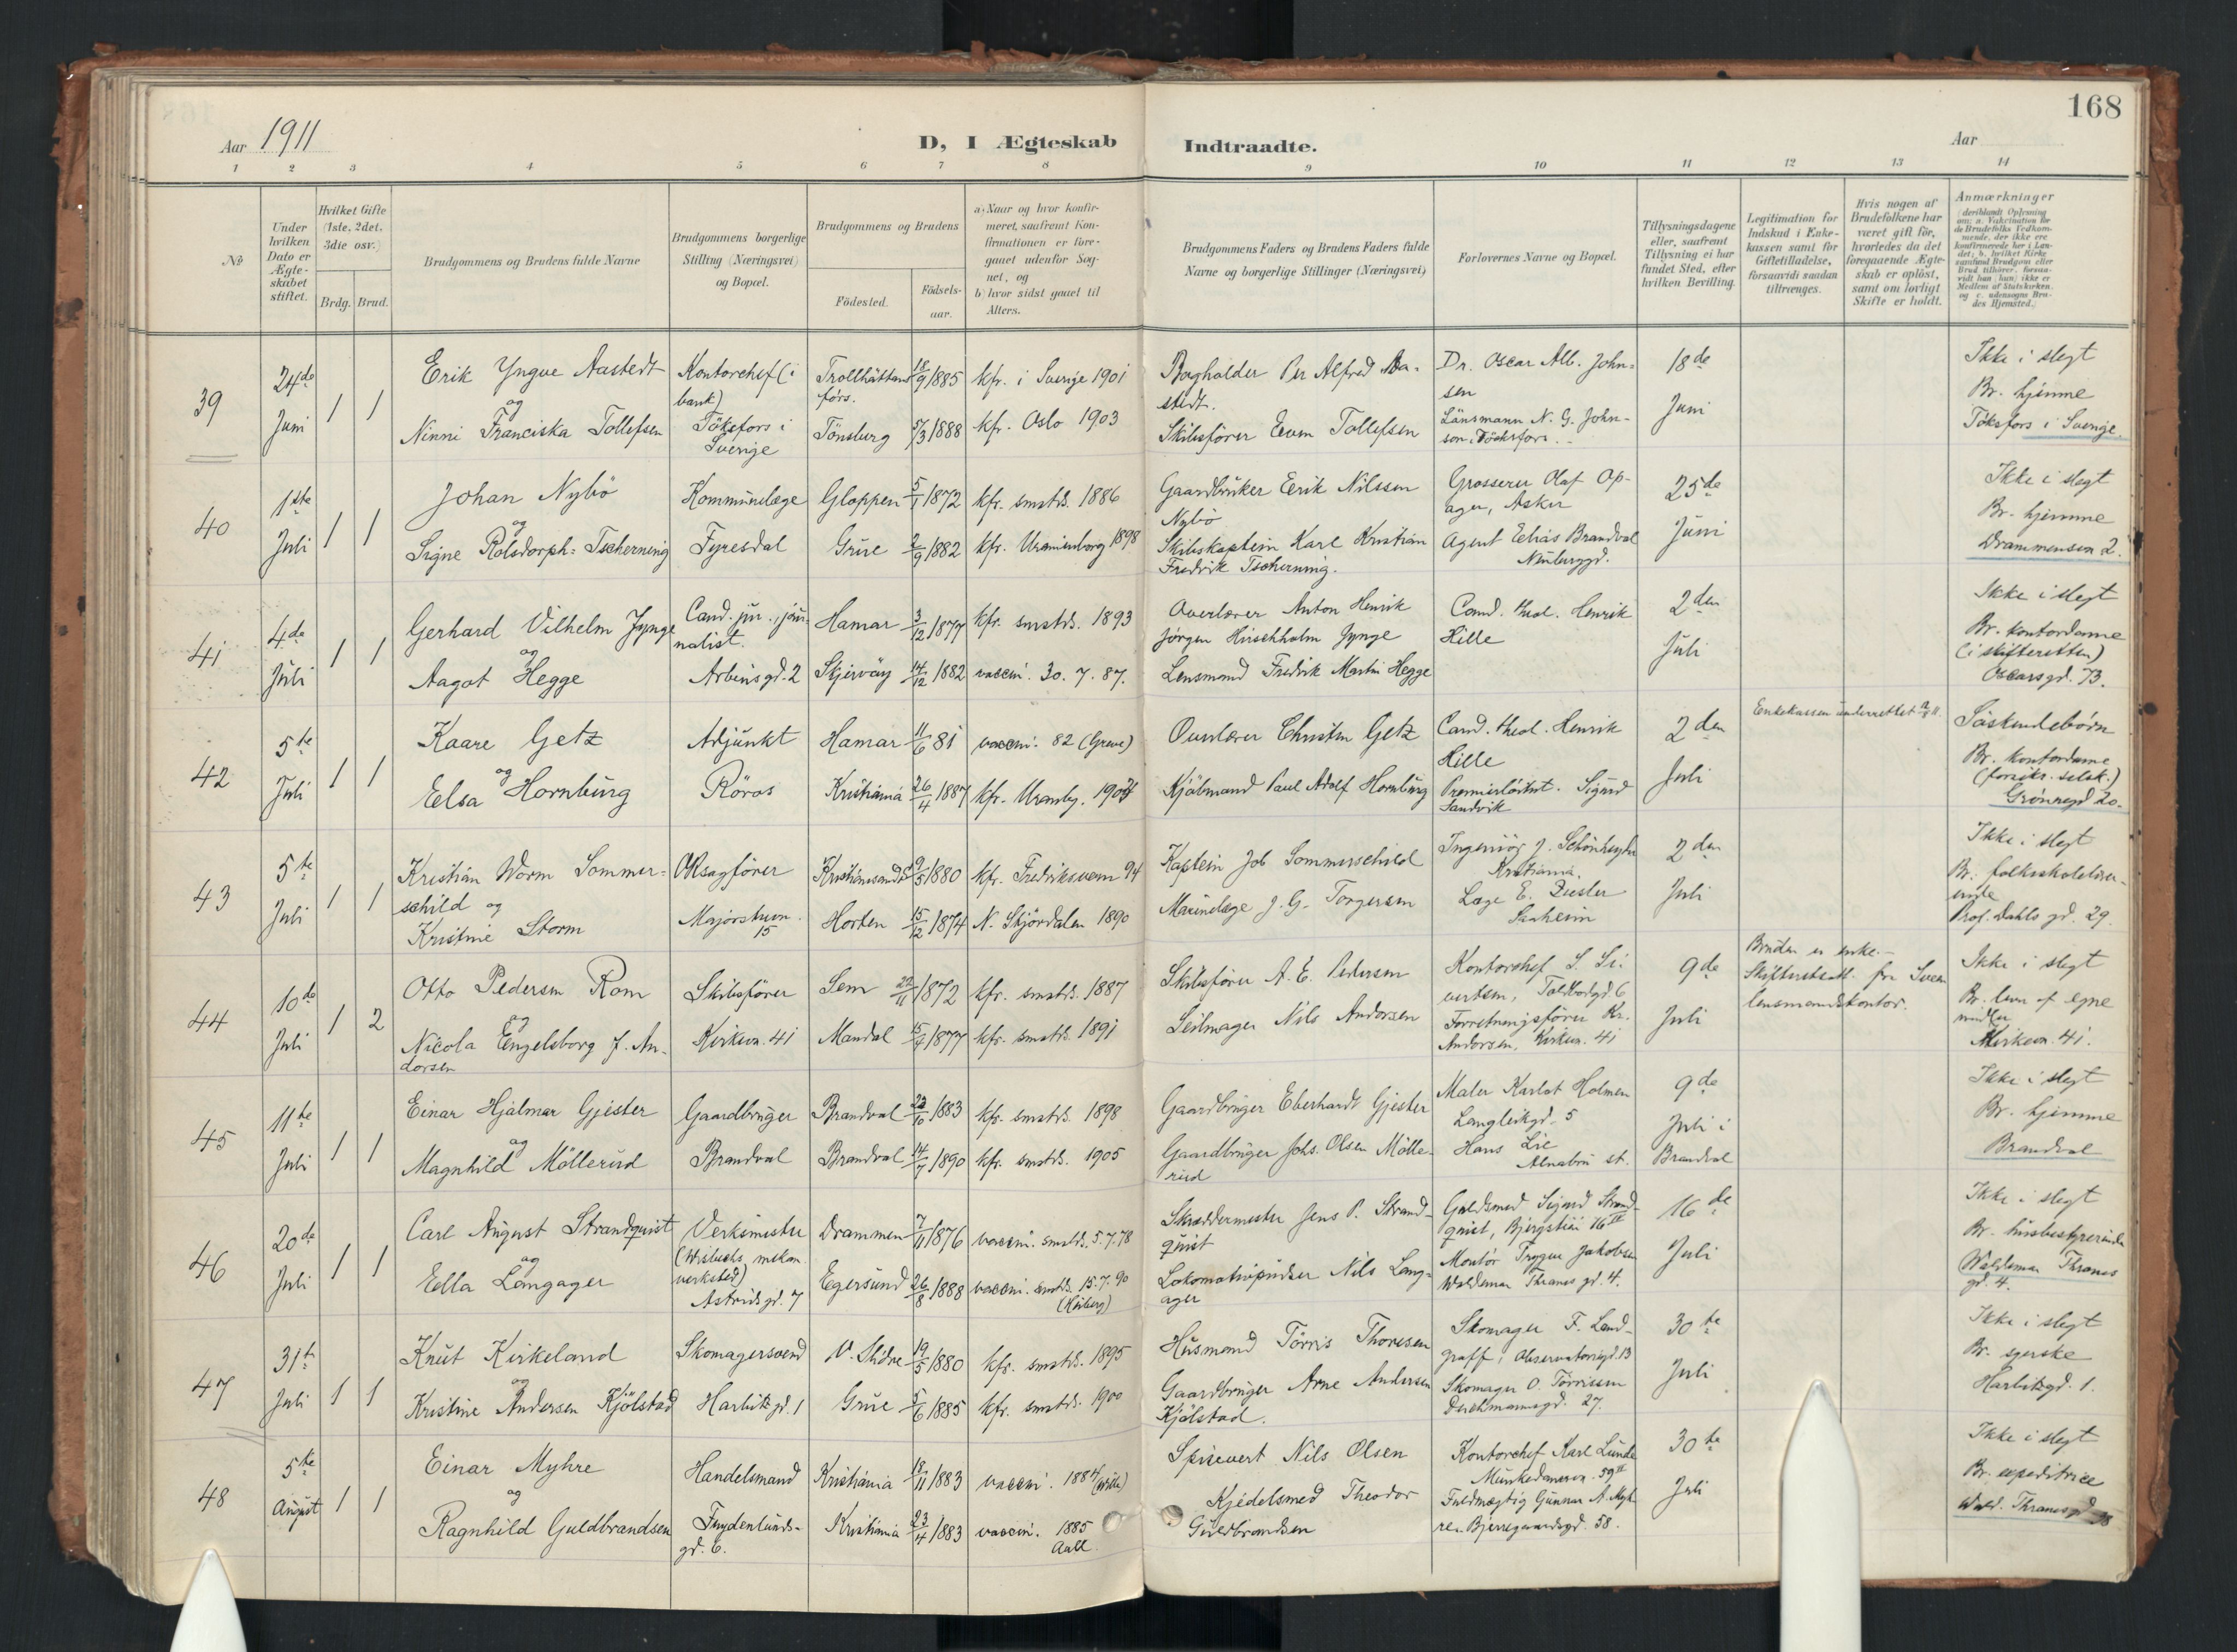 168
Aar 1911
D, I Ægteskab Indtraadte.
Aar
1 2 3 4 5 6 7 8 9 10 11 12 13 14
No
Under hvilken Dato er Ægteskabet stiftet.
Hvilket Gifte (1ste, 2det, 3die osv.)
Brdg. Brud.
Brudgommens og Brudens fulde Navne
Brudgommens borgerlige Stilling (Næringsvei) og Bopæl.
Brudgommens og Brudens
Födested.
Födsels-aar.
a) Naar og hvor konfir-
meret, saafremt Kon-
firmationen er fore-
gaaet udenfor Sog-
net, og
b) hvor sidst gaaet til
Alters.
Brudgommens Faders og Brudens Faders fulde
Navne og borgerlige Stillinger (Næringsvei)
Forlovernes Navne og Bopæl.
Tillysningsdagene
eller, saafremt
Tillysning ei har
fundet Sted, efter
hvilken Bevilling.
Legitimation for
Indskud i Enke-
kassen samt for
Giftetilladelse,
forsaavidt saadan
tiltrænges.
Hvis nogen af
Brudefolkene har
været gift för,
hvorledes da det
foregaaende Ægte-
skab er oplöst,
samt om lovligt
Skifte er holdt.
Anmærkninger
(deriblandt Oplysning
om: a. Vakcination for
de Brudefolks Vedkom-
mende, der ikke ere
konfirmerede her i Lan-
det; b. hvilket Kirke-
samfund Brudgom eller
Brud tilhörer, forsaa-
vidt han (hun) ikke er
Medlem af Statskirken
og c. udensogns Bru-
des Hjemsted.)
39
24de
Juni
1 1
Erik Yngve Aastedt
og
Ninni Franciska Tollefsen
Kontorchef (i
bank)
Töksfors i
Sverige
Trollhättans
förs.
18/9 1885
kfr. i Sverige 1901
Tönsberg
5/3 1888
kfr. Oslo 1903
Bogholder Per Alfred Aa-
stedt.
Skibsfører Even Tollefsen
Dr. Oscar Alb. John-
sen
Länsmann N. G. John-
son, Töcksfors.
18de
Juni
Ikke i slegt
Br. hjemme
Töksfors i Sverige.
40
1ste
Juli
1 1
Johan Nybö
og
Signe Rolsdorph-Tscherning
Kommunelæge
Fyresdal
Gloppen
5/1 1872
kfr. smstds. 1886
Grue
2/9 1882
kfr. Uranienborg 1898
Gaardbruker Eerik Nilssen
Nybö
Skibskaptein Karl Kristian
Fredrik Tscherning.
Grosserer Olaf Op-
ager, Asker
Agent Eelias Brandval
Neuberggd.
25de
Juni
Ikke i slegt
Br. hjemme
Drammensvn 2.
41
4de
Juli
1 1
Gerhard Vilhelm Jynge
og
Aagot Hegge
Cand. jur., jour-
nalist.
Arbinsgd. 2
Hamar
3/12 1877
kfr. smstds. 1893
Skjervöy
14/12 1882
vaccin. 30. 7. 87.
Overlærer Anton Henrik
Jörgen Hirschholm Jynge
Lensmand Fredrik Martin Hegge
Cand. theol. Henrik
Hille
2den
Juli
Ikke i slegt
Br. kontordame
(i skifteretten)
Oscarsgd. 73.
42
5te
Juli
1 1
Kaare Getz
og
Eelsa Hornburg
Adjunkt
Röros
Hamar
11/6 81
vaccin. 82 (Greve)
Kristiania
26/4 1887
kfr. Uranbg. 1904
Overlærer Christen Getz
Kjöbmand Paul Adolf Hornburg
Cand. theol. Henrik
Hille
Premierlöitnt. Sigurd
Sandvik
2den
Juli
Enkekassen underrettet
Söskendebörn
Br. kontordame
(forsikr. selsk.)
Grönnegd 20.
43
5te
Juli
1 1
Kristian Worm Sommer-
schild og
Kristine Storm
OR sagfører
Majorstuvn.
15
Kristianssand S
9/5 1880
kfr. Fredriksvern 94
Horten
15/12 1874
N. Stjördalen 1890
Kaptein Job Sommerschild
Marinelæge J. G. Torgersen
Ingeniör J. Schönheyder
Kristiania.
Læge E. Ziesler
Saaheim
2den
Juli
Ikke i slegt
Br. folkskolelærer-
inde
Prof. Dahls gd. 29.
44
10de
Juli
1 2
Otto Pedersen Rom
og
Nicola Engelsborg f. An-
dorsen
Skibsfører
Kirkevn. 41
Sem
22/11 1872
kfr. smstds. 1887
Mandal
1877
kfr. smstds. 1891
Skibsfører A. E. Pedersen
Seilmager Nils Andorsen
Kontorchef S. Si-
vertsen, Toldbodgd. 6
Forretningsfører Kr.
Andorsen, Kirkevn. 41
9de
Juli
Bruden er enke.
Skifteattest fra
lensmandskontor.
Ikke i slegt
Br. lever af egne
midler
Kirkevn. 41.
45
11te
Juli
1 1
Einar Hjalmar Gjester
og
Magnhild Möllerud
Gaardbruger
Brandval
Brandval
1883
kfr. smstds. 1898
Brandval
14/7 1890
kfr. smstds. 1905
Gaardbruger Eberhardt Gjester
Gaardbruger Johs. Olsen Mölle-
rud
Maler Karlot Holmen
Langleikgd. 5
Hans Lie
Alnabru st.
9de
Juli i
Brandval
Ikke i slegt
Br. hjemme
Brandval
46
20de
Juli
1 1
Carl August Strandquist
og
Eella Langager
Verksmester
(Wisbechs mekan.
verksted)
Astridsgd. 7
Drammen
7/11 1876
vaccin. smstds. 5.7.78
Egersund
26/8 1888
vaccin. smstds. 15.7.90
(Heiberg)
Skreddermester Jens P. Strand-
quist
Lokomotivpudser Nils Lang-
ager
Guldsmed Sigurd Strand-
quist, Bjergstien 16 II
Montör Trygve Jakobsen
Waldemar Thranes gd. 4.
16de
Juli
Ikke i slegt
Br. husbestyrerinde
Waldemar Thranes
gd. 4.
47
31te
Juli
1 1
Knut Kirkeland
og
Kristine Andersen Kjölstad
Skomagersvend
Harbitzgd. 1
V. Slidre
19/5 1880
kfr. smstds. 1895
Grue
5/6 1885
kfr. smstds. 1900
Husmand Törris Thoresen
Gaardbruger Arne Andersen
Kjölstad.
Skomager F. Land-
graff, Observatoriegd. 13
Skomager O. Törrissen
Deichmannsgd. 27.
30te
Juli
Ikke i slegt
Br. syerske
Harbitzgd. 1.
48
5te
August
1 1
Einar Myhre
og
Ragnhild Guldbrandsen
Handelsmand
Frydenlunds-
gd. 6.
Kristiania
18/11 1883
vaccin. 1884 (Wille)
Kristiania
23/4 1883
vaccin. 1885
Aall.
Spisevert Nils Olsen
Kjedelsmed Theodor
Guldbrandsen
Kontorchef Karl Lunde
Munkedamsvn. 59 II
Fuldmægtig Gunnar A. Myh-
re. Bjerregaardsgd. 58.
30te
Juli
Ikke i slegt
Br. expeditrice
Wald. Thranesgd